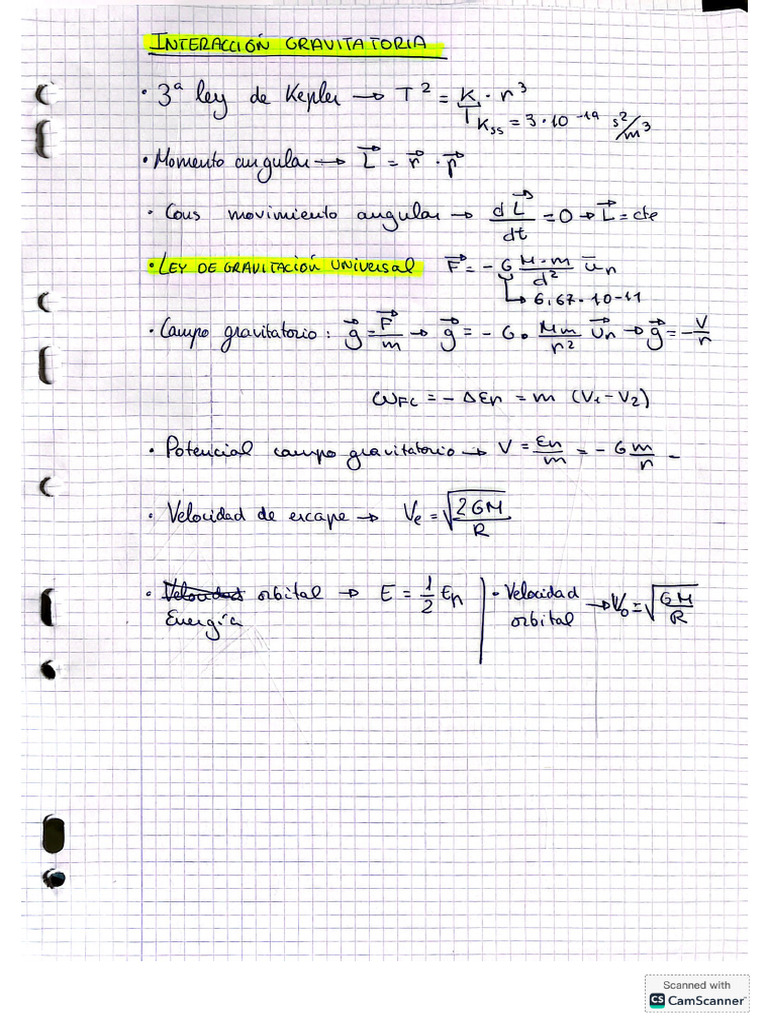 INTERACCIÓN GRAVITATORIA
· 3ª ley de Kepler → T² = K · r³
K_SS = 3·10⁻¹⁹ s²/m³
· Momento angular → L⃗ = r⃗ · p⃗
· Cons movimiento angular → dL⃗/dt = 0 → L⃗ = cte
· LEY DE GRAVITACIÓN UNIVERSAL F⃗ = -G M·m/d² u̅n
↳ 6,67·10-11
· Campo gravitatorio : g⃗ = F⃗/m → g⃗ = - G · Mm/r² u⃗n → g⃗ = -V/r
ωFC = - ΔEn = m (V₁ - V₂)
· Potencial campo gravitatorio → V = En/m = - G m/r -
· Velocidad de escape → Ve = √(2GM/R)
· orbital → E = 1/2 En | · Velocidad orbital → Vo = √(GM/R)
Energía